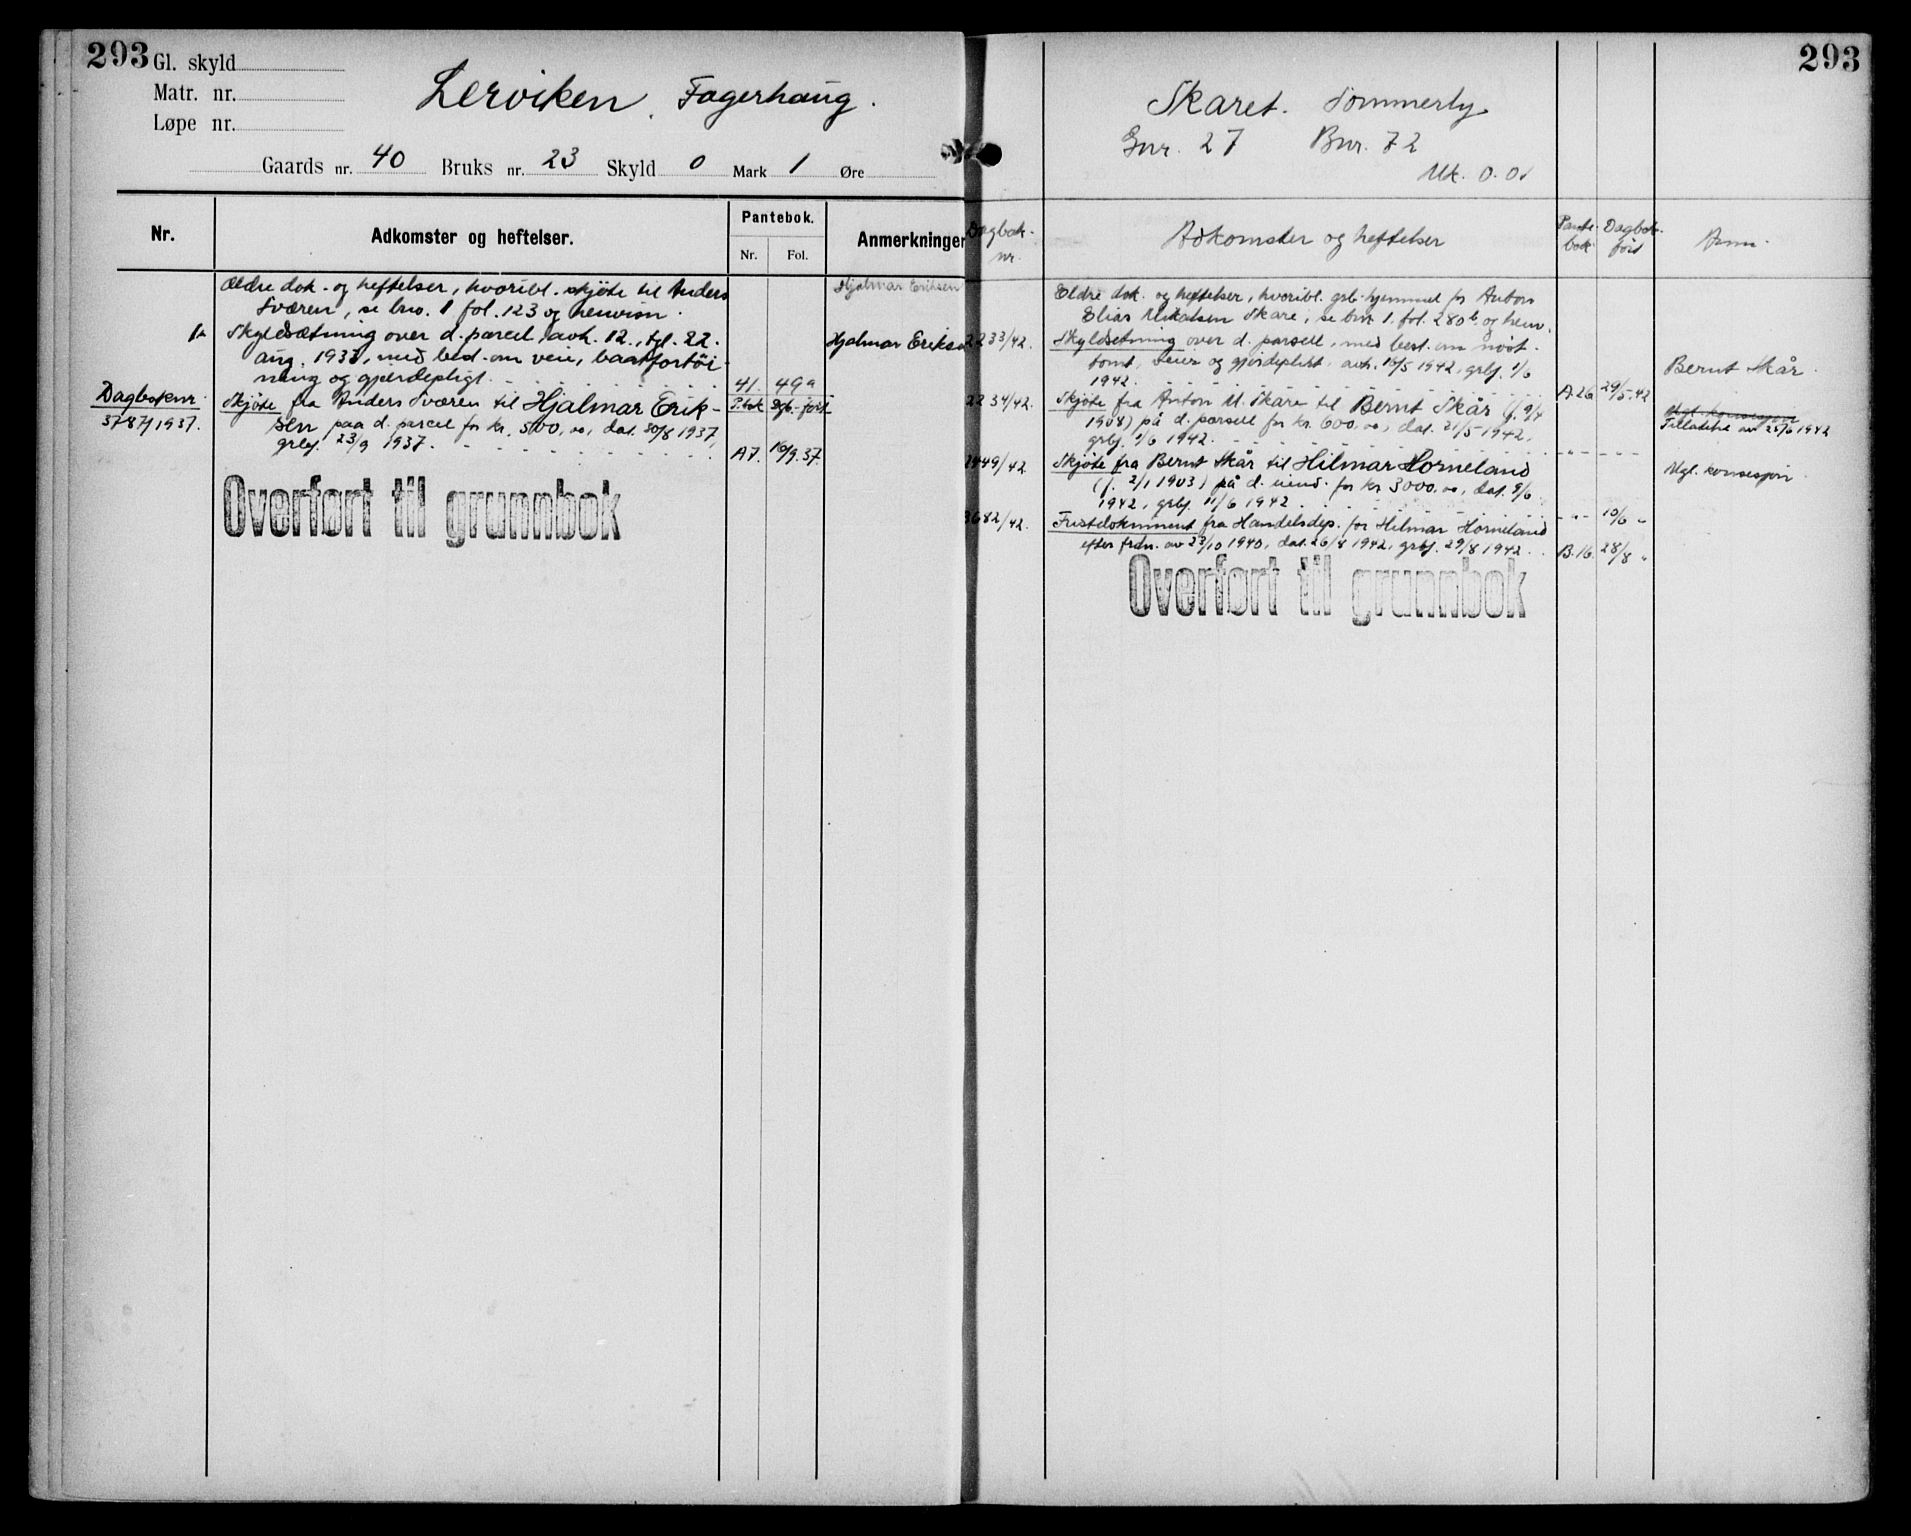 293
Gl. skyld
Matr. nr.
Løpe nr.
Lerviken, Fagerhaug.
Gaards nr. 40 Bruks nr. 23 Skyld 0 Mark 1 Øre
Nr.
Adkomster og heftelser.
Pantebok.
Nr. Fol.
Anmerkninger
Ældre dok. og heftelser, hvoribl. skjöte til Anders
Sværen, se bno. 1 fol. 123 og henvisn.
Hjalmar Eriksen
1. Skyldsætning over d. parcel, avh. 12., tgl. 22.
aug. 1931, med best. om veie, baatfortöi-
ning og gjerdepligt. 41. 49a
Hjalmar Eriksen
Dagboknr.
3787/1937.
Skjöte fra Anders Sværen til Hjalmar Erik-
sen paa d. parcel for kr. 500,00, dat. 30/8 1937,
grbf. 23/9 1937.
P.bok Dgb. ført
A7. 10/9.37.
Overført til grunnbok
293
Skaret. Sommerly
Gnr. 27 Bnr. 72
Mk. 0.01
Dagbok-
nr.
Adkomster og heftelser
Pante-
bok
Dagbok-
ført
Anm.
Eldre dok. og heftelser, hvoribl. grb. hjemmel for Anton
Elias Skare, se bnr. 1. fol. 280b og henv.
2233/42. Skyldsetning over d. parsell, med best. om nöst-
tomt, veier og gjerdeplikt, avh. 15/5 1942, grbf. 1/6
1942. A.26 29/5.42
Bernt Skår.
2234/42. Skjöte fra Anton M. Skare til Bernt Skår (f. 9/4
1908) på d. parsell for kr. 600,00, dat. 21/5 1942,
grbf. 1/6 1942. - " - - - -
Mgl. konsesjon
Tillatelse av 25/6 1942
2449/42 Skjöte fra Bernt Skår til Hilmar Horneland
(f. 2/1 1903) på d. eiend. for kr. 3000,00, dat. 9/6
1942, grbf. 11/6 1942. - " - 10/6 "
Mgl. konsesjon
3682/42. Fristdokument fra Handelsdep. for Hilmar Horneland
efter frdn. av 29/10 1940, dat. 26/8 1942, grbf. 29/8 1942. B.16. 28/8 "
Overført til grunnbok